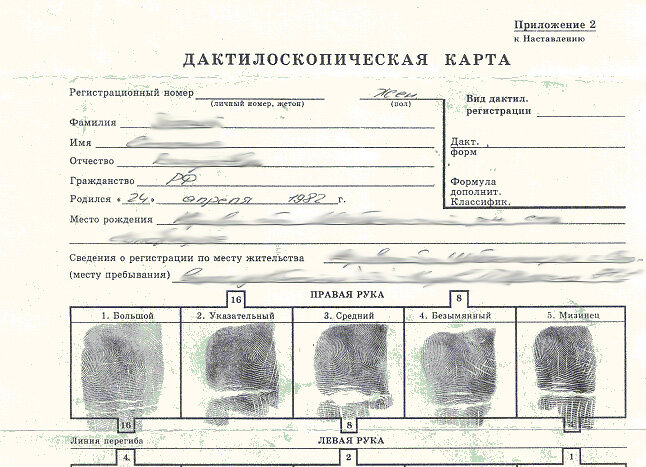 Приложение 2
к Наставлению
ДАКТИЛОСКОПИЧЕСКАЯ КАРТА
Регистрационный номер
(личный номер, жетон)
жен
(пол)
Вид дактил.
регистрации
Фамилия
Имя
Отчество
Гражданство РФ
Родился « 24 » апреля 1982 г.
Дакт.
форм
Формула
дополнит.
Классифик.
Место рождения
Сведения о регистрации по месту жительства
(месту пребывания)
16 ПРАВАЯ РУКА 8
1. Большой 2. Указательный 3. Средний 4. Безымянный 5. Мизинец
16 8 4
Линия перегиба ЛЕВАЯ РУКА
4. 2 1